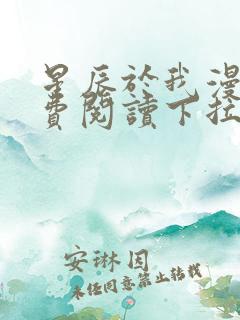 星辰於我漫
費閱讀下拉
安琳因
未经同意禁止转载